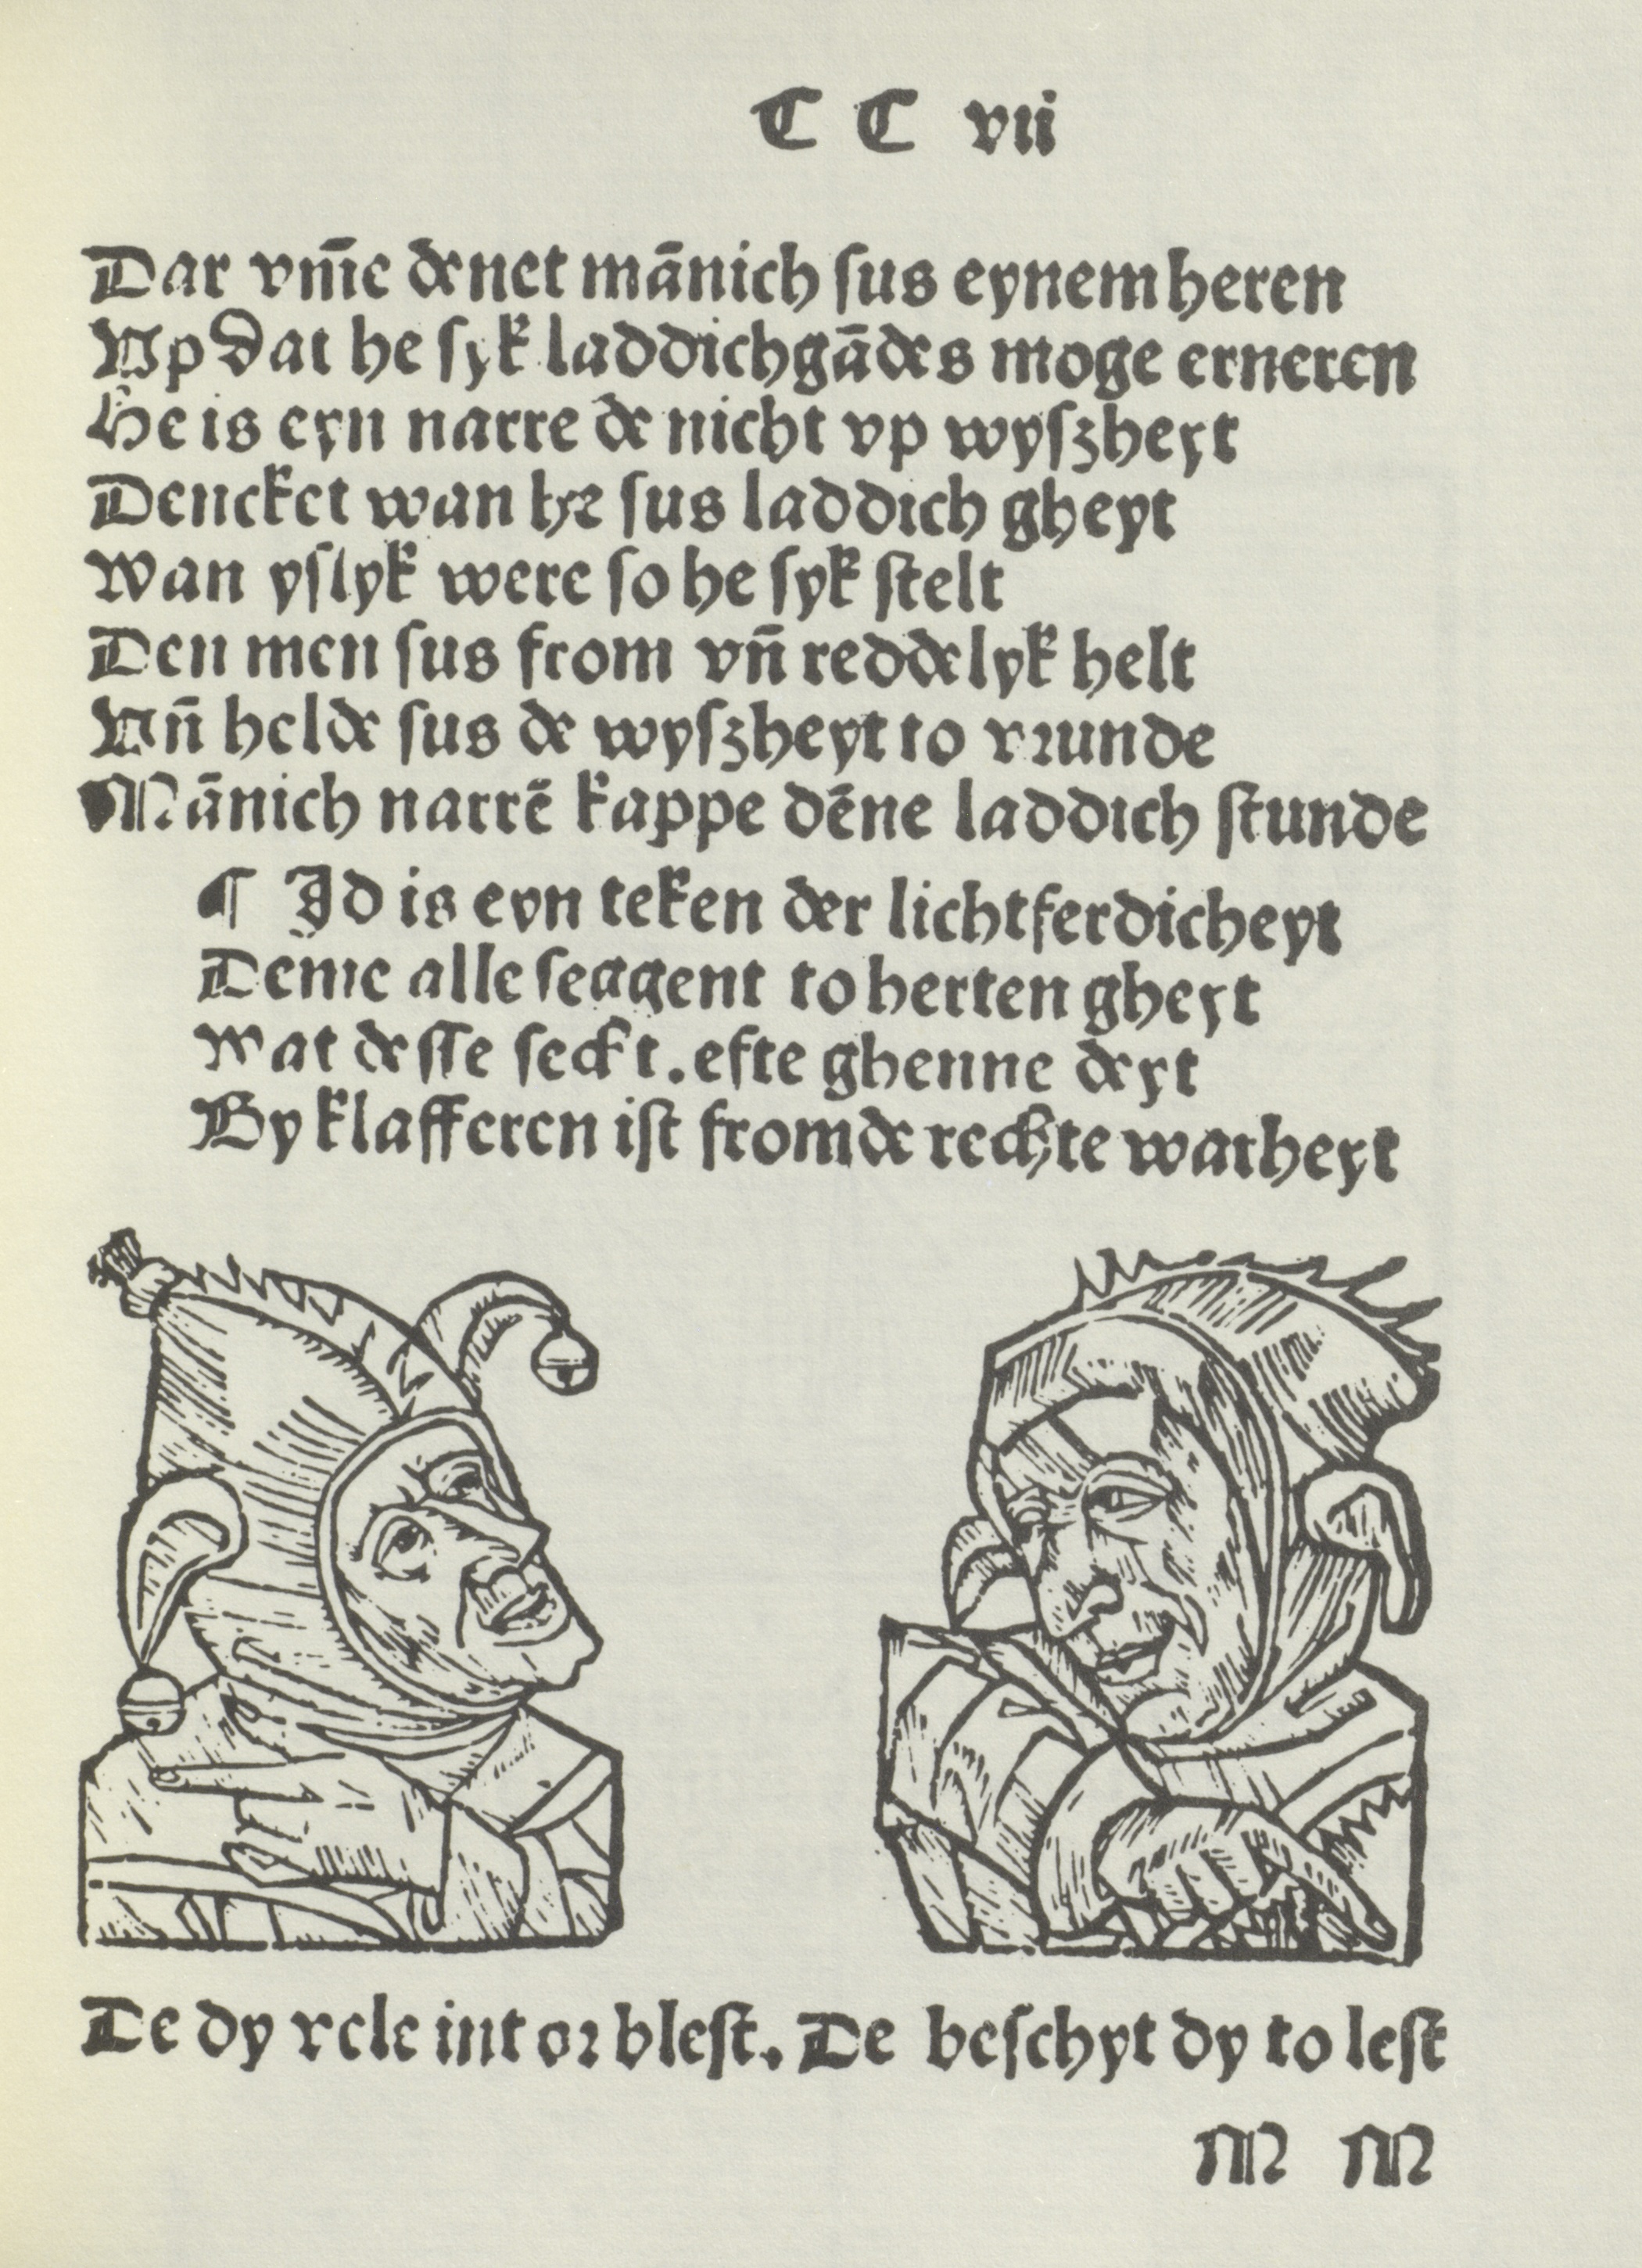 C C vii
Dar vm̄e denet mānich ſus eynem heren
Vp dat he ſyk laddichgādes moge erneren
He is eyn narre de nicht vp wyſzheyt
Dencket wan he ſus laddich gheyt
Wan yſlyk were ſo he ſyk ſtelt
Den men ſus from vn̄ reddelyk helt
Vn̄ helde ſus de wyſzheyt to vrunde
Mānich narrē kappe dēne laddich ſtunde
¶ Id is eyn teken der lichtferdicheyt
Deme alle ſeggent to herten gheyt
Wat deſſe ſeckt. efte ghenne deyt
By klafferen iſt fromde rechte warheyt
De dy vele int or bleſt. De beſchyt dy to leſt
M M